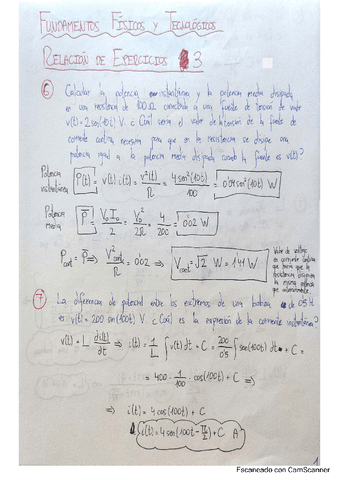 FUNDAMENTOS FÍSICOS Y TECNOLÓGICOS
RELACIÓN DE EJERCICIOS 3
6 Calcular la potencia instantánea y la potencia media disipada
en una resistencia de 100 Ω conectada a una fuente de tensión de valor
v(t) = 2 sen(10t) V. ¿Cuál sería el valor de la tensión de la fuente de
corriente continua necesaria para que en la resistencia se disipe una
potencia igual a la potencia media disipada cuando la fuente es v(t)?
Potencia instantánea P(t) = v(t) i(t) = v²(t)/R = 4 sen²(10t)/100 = 0'04 sen²(10t) W
Potencia Media P̄ = V₀I₀/2 = V₀²/2R = 4/200 = 0'02 W
P_cont = P̄ ⇒ V²cont/R = 0'02 ⇒ V_cont = √2 W = 1'41 W
Valor de voltaje
en corriente continua
que haría que la
resistencia disipara
la misma potencia
7 La diferencia de potencial entre los extremos de una bobina de 0'5 H
es v(t) = 200 sen(100t) V ¿Cuál es la expresión de la corriente instantánea?
v(t) = L di(t)/dt ⇒ i(t) = 1/L ∫ v(t) dt + C = 200/0'5 ∫ sen(100t) dt + C =
= 400 · 1/100 · cos(100t) + C ⇒
⇒ i(t) = 4 cos(100t) + C
i(t) = 4 sen(100t - π/2) + C A
1
Escaneado con CamScanner